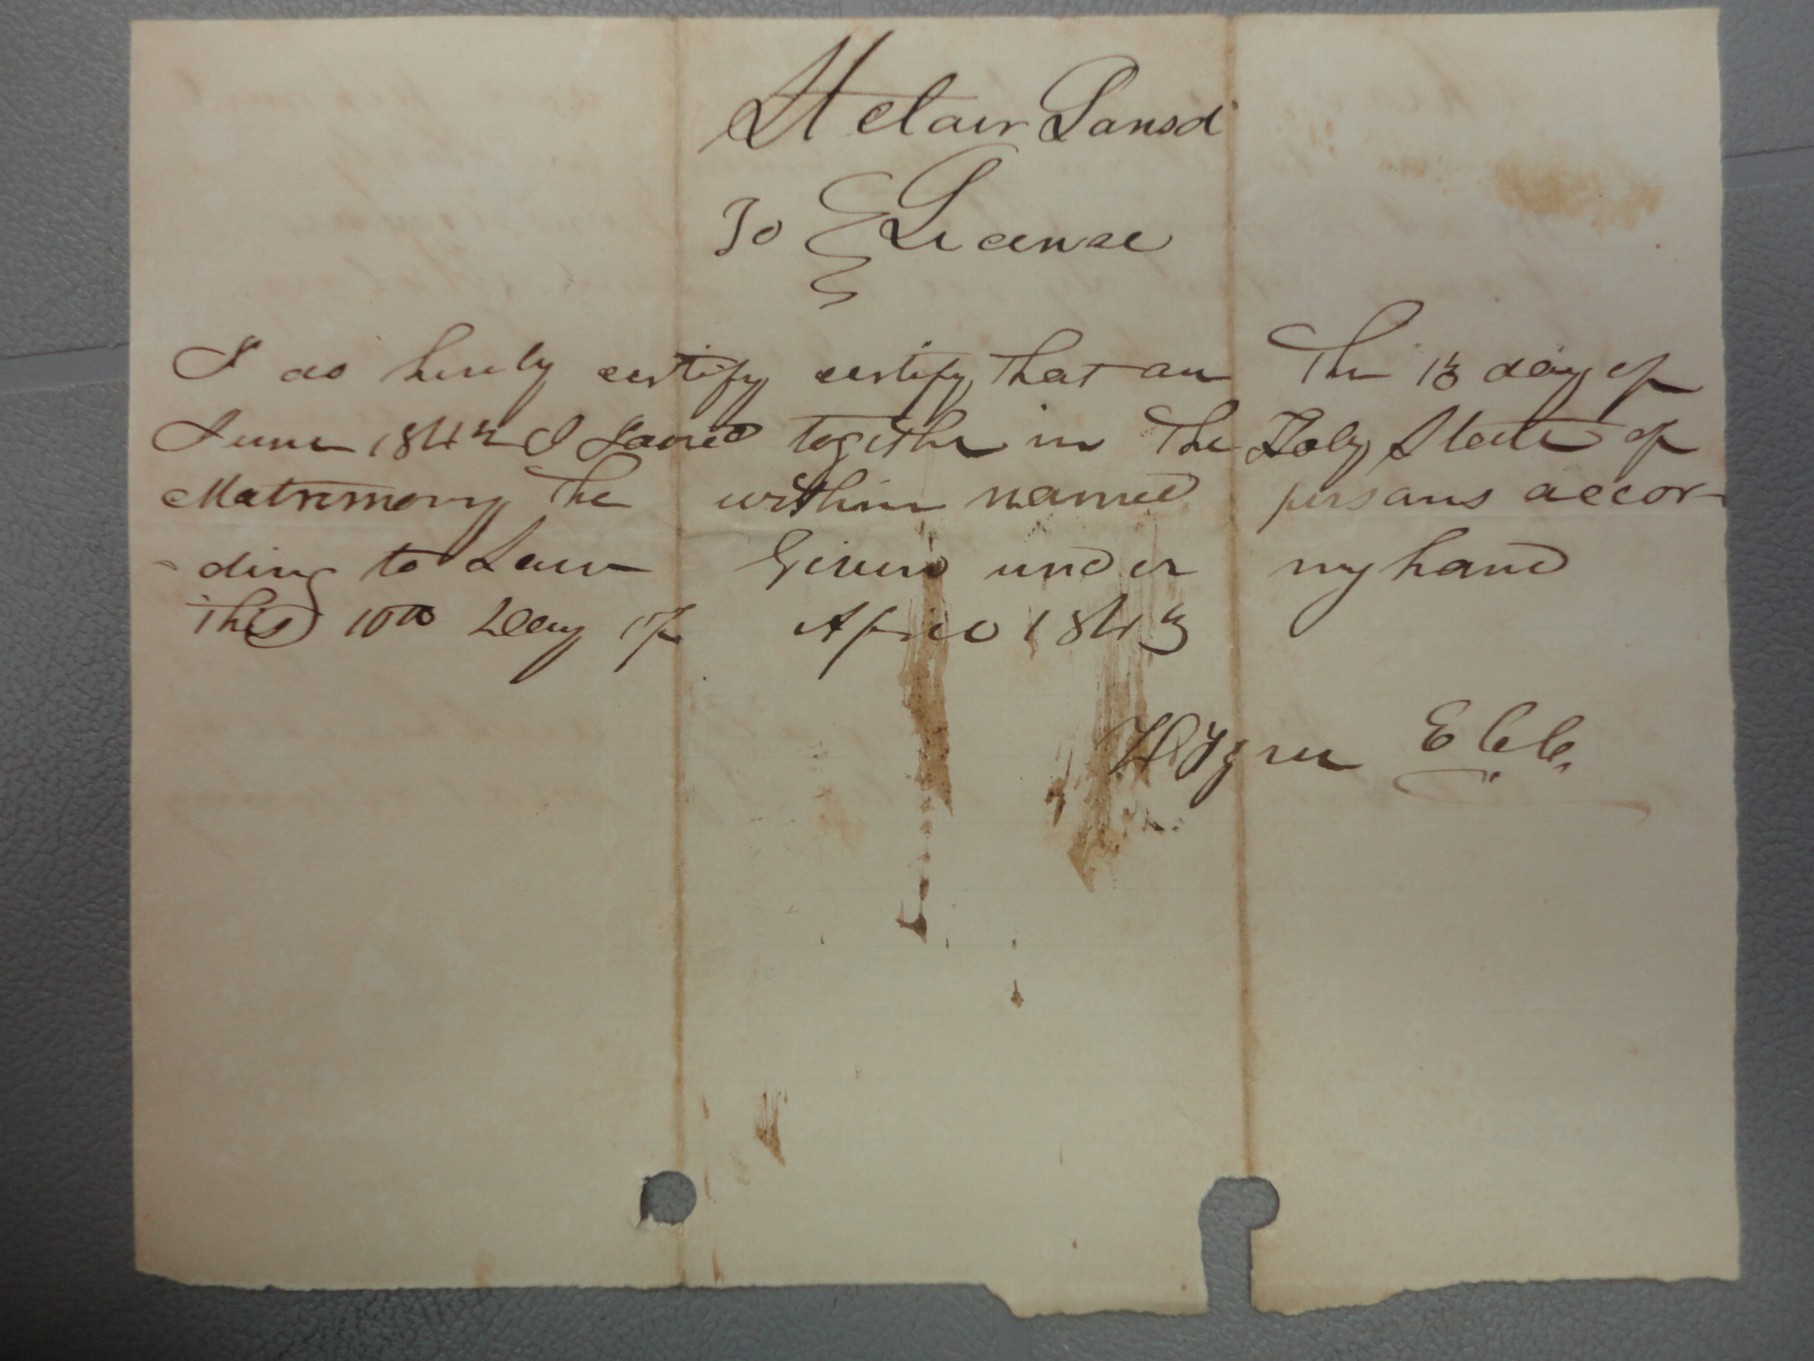 St clair Parish
To License
I do hereby certify certify that on The 13 day of
June 1842 I Joined together in The Holy State of
Matrimony The within named persons accor-
-ding to Law Given under my hand
This 10th Day of April 1843
E. C. C.